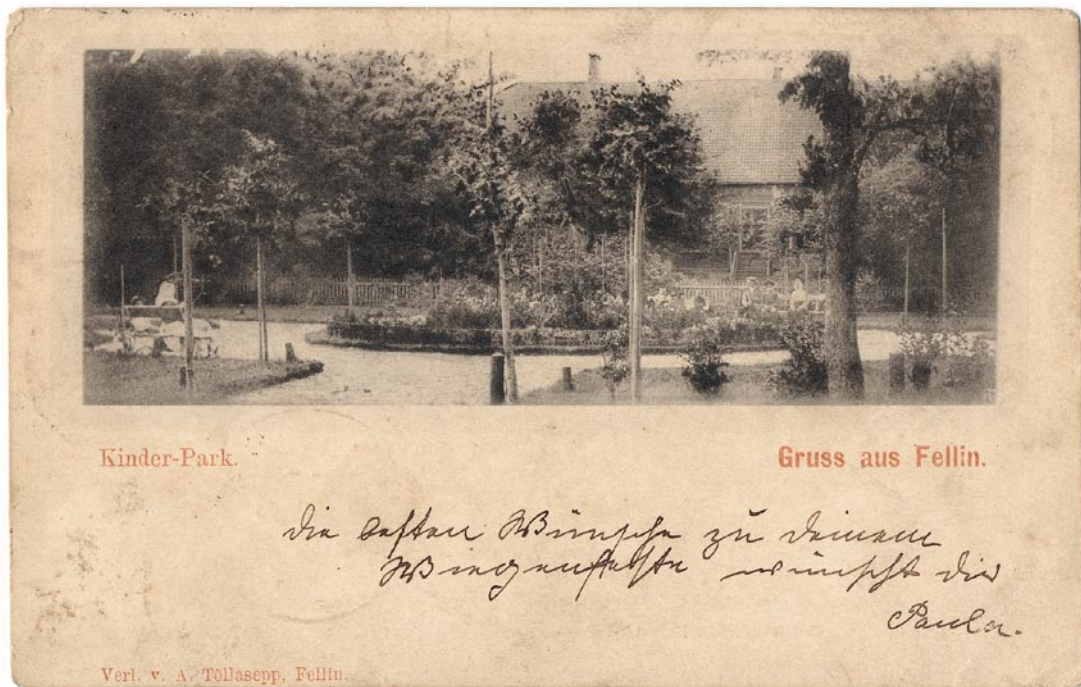 Kinder-Park.
Gruss aus Fellin.
die besten Wünsche zu deinem
Wiegenfeste wünscht dir
Paula.
Verl. v. A. Töllasepp, Fellin.